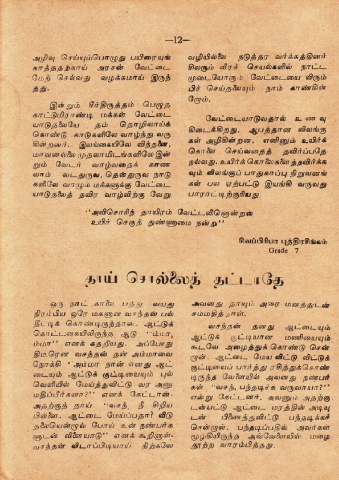 —12—
அழிவு செய்யும்பொழுது பயிரையுங்
காத்ததற்காய் அரசன் வேட்டை
மேற் செல்வது வழக்கமாய் இருந்
தது.
இன்றும் பிரித்திருத்தம் பெறாத
காட்டுபிராண்டி மக்கள் வேட்டை
யாடுதலையே தம் தொழிலாய்க்
கொண்டு காடுகளிலே வாழ்ந்து வரு
கின்றனர். இலங்கையிலே விந்தனை,
மாவனல்லை முதலாமிடங்களிலே இன்
றும் வேடர் வாழ்வதைக் காண
லாம் வடதுருவ, தென்துருவ நாடு
களிலே வாழும் மக்களுக்கு வேட்டை
யாடுதலைத் தவிர வாழ்விற்கு வேறு
வழியில்லை நடுத்தர வர்க்கத்தினர்
சிலரும் வீரச் செயல்களில் நாட்ட
முடையோரும் வேட்டையை விரும்
பிச் செய்தலையும் நாம் காண்கின்
றோம்.
வேட்டையாடுவதால் உணவு
கிடைக்கிறது. ஆபத்தான விலங்கு
கள் அழிகின்றன. எனினும் உயிர்க்
கொலை செய்வதைத் தவிர்ப்பதே
நல்லது. உயிர்க்கொலையை தவிர்க்க
வும் விலங்குப் பாதுகாப்பு நிறுவனங்
கள் பல ஏற்பட்டு இயங்கி வருவது
பாராட்டிற்குரியது
"அவிசொரிந் தாயிரம் வேட்டலினொன்றன்
உயிர் செகுத் துண்ணாமை நன்று"
சிவப்பிரியா புத்திரசிங்கம்
Grade 7
தாய் சொல்லைத் தட்டாதே
ஒரு நாட் காலை பத்து வயது
நிரம்பிய ஒரே மகனான வசந்தன் பல்
தீட்டிக் கொண்டிருந்தான். ஆட்டுக்
கொட்டகையிலிருந்த ஆடு "ம்மா,
ம்மா" எனக் கதறியது. அப்போது
திடீரென வசந்தன் தன் அம்மாவை
நோக்கி "அம்மா நான் எனது ஆட்
டையும் ஆட்டுக் குட்டியையும் புல்
வெளியில் மேய்த்துவிட்டு வர அனு
மதிப்பீர்களா?" எனக் கேட்டான்.
அதற்குத் தாய் "வசந், நீ சிறிய
பிள்ளை. ஆட்டை மேய்ப்பதா? வீடு
தலையென்றால் போய் உன் நண்பர்க
ளுடன் விளையாடு" எனக் கூறினாள்.
வசந்தன் விடாப்பிடியாய் நிற்கவே
அவனது தாயும் அரை மனத்துடன்
சம்மதித் தாள்.
வசந்தன் தனது ஆட்டையும்
ஆட்டுக் குட்டியான மணியையும்
கூடவே அழைத்துக்கொண்டு சென்
றான். ஆட்டை மேய விட்டு விட்டுக்
குட்டியைப் பார்த்து ரசித்துக்கொண்
டிருந்த வேளையில் அவனது நண்பர்
கள் "வசந், பந்தடிக்க வருவாயா?"
என்று கேட்டனர். அவனும் அதற்கு
டன்பட்டு ஆட்டை மரத்தின் அடியு
டன் பிணைத்துவிட்டு பந்தடிக்கச்
சென்றான். பந்தடிப்பதில் அவர்கள்
மூழ்கியிருந்த அவ்வேளையில் மழை
தூற்ற வாரம்பித்தது.